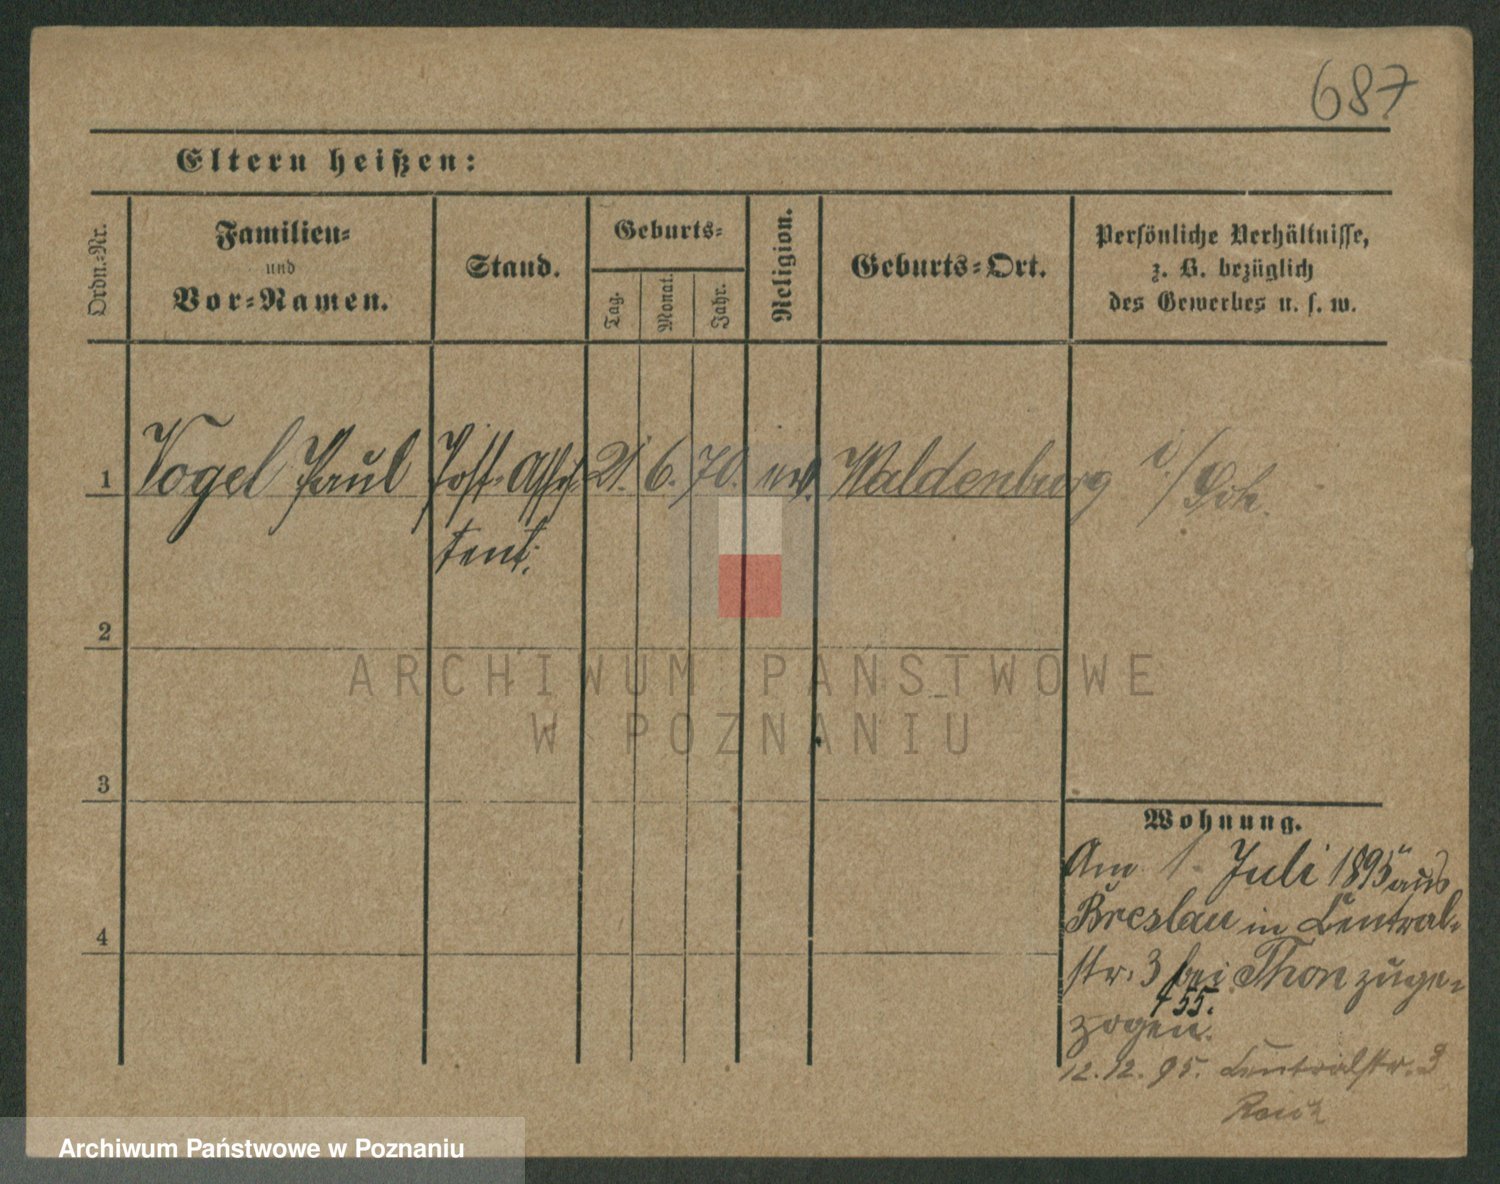 687
Eltern heißen:
Ordn.-Nr.
Familien-
und
Vor-Namen.
Stand.
Geburts-
Tag.
Monat.
Jahr.
Religion.
Geburts-Ort.
Persönliche Verhältnisse,
z. B. bezüglich
des Gewerbes u. s. w.
1 Vogel Paul Post-Assis 21. 6. 70. ev. Waldenburg i/
tent.
2
ARCHIWUM PAŃSTWOWE
W POZNANIU
3
Wohnung.
Am 1. Juli 1895 aus
Breslau in Central-
str. 3 bei Thon zuge-
455.
zogen.
4
12.12.95. Centralstr. 3
Archiwum Państwowe w Poznaniu